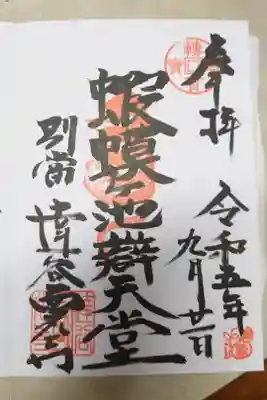 奉拝 令和五年
九月廿一日
蝦蟇ヶ池辯天堂
別当